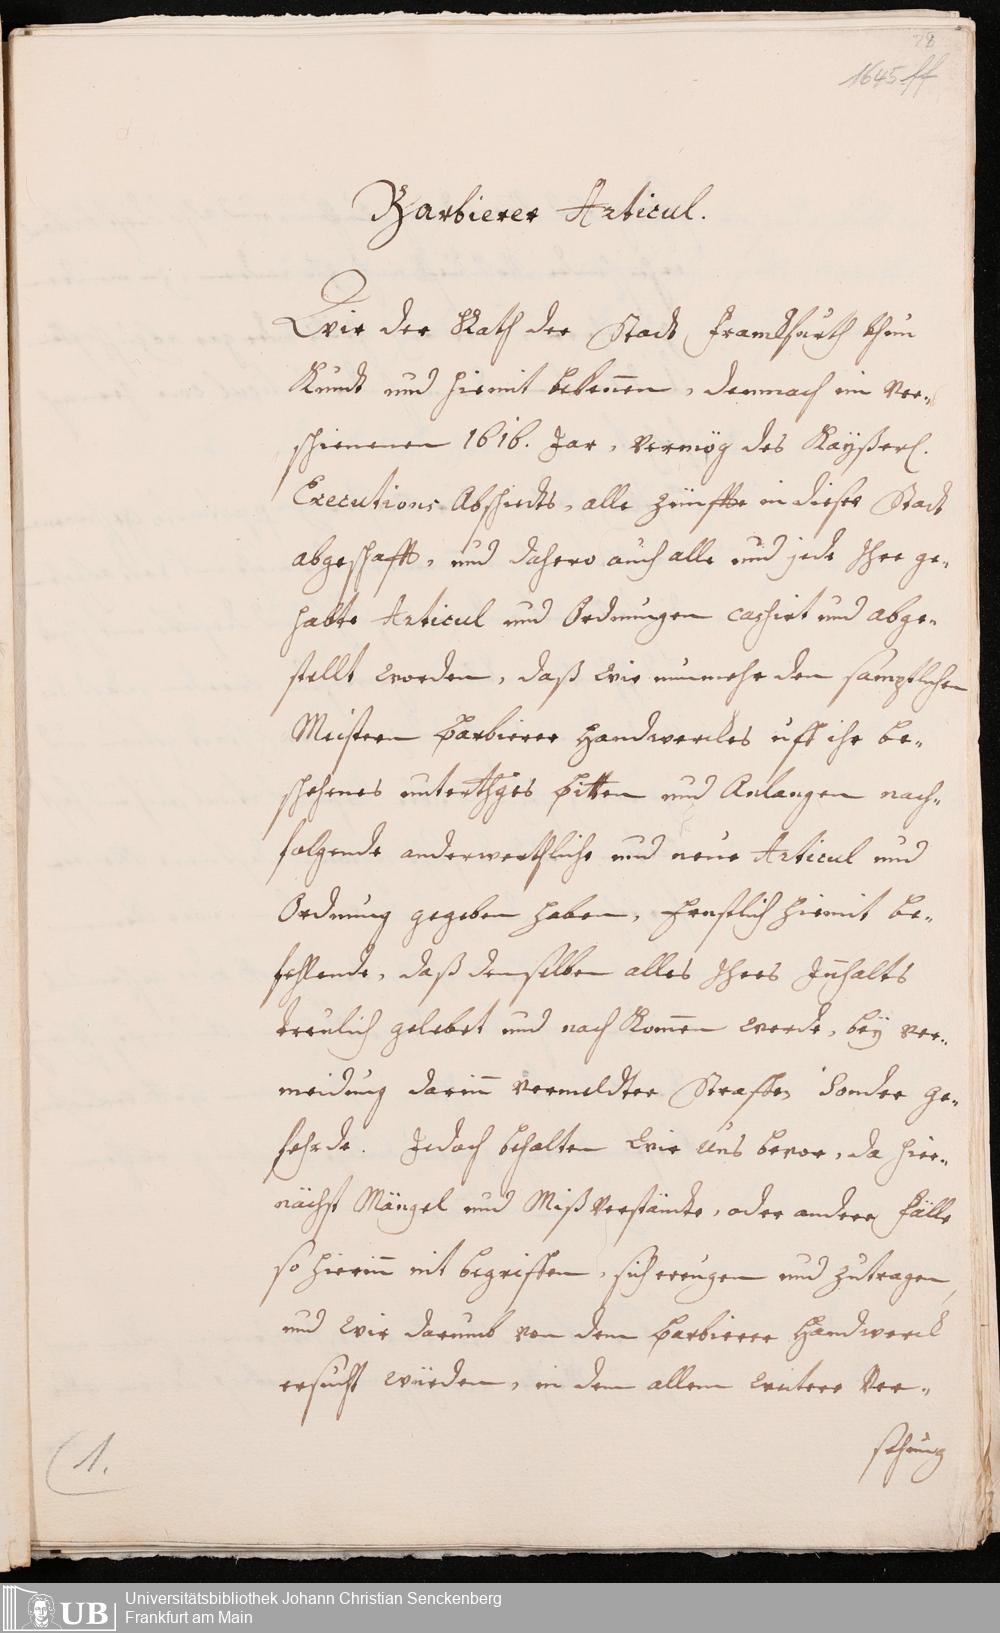 78
1645 ff
Barbierer Articul.
Wir der Rath der Stadt Franckfurth thun
Kundt und hiemit bekennen, demnach im ver-
schienenen 1616. Jar, vermög des Kaÿßerl.
Executions Abschiedts, alle Zünffte in dieser Stadt
abgeschafft, und dahero auch alle und jede Ihre ge-
habte Articul und Ordnungen cassirt und abge-
stellt worden, daß wir nunmehr den samptlichen
Meistern Barbierer Handwerckes uff ihr be-
schehenes unterthges Bitten und Anlangen nach-
folgende anderwerthliche und neue Articul und
Ordnung gegeben haben, Ernstlich hiemit be-
fehlende, daß demselben alles Ihres Inhalts
treulich gelebet und nach Kommen werde, beÿ ver-
meidung darinn vermeldter Straffen Sonder ge-
fehrde. Jedoch behalten wir Uns bevor, da hier-
nächst Mängel und Mißverstände, oder andere Fälle
so hierinn nit begriffen, sich ereugen und zutragen,
und wir darumb von dem Barbierer Handwerck
ersucht würden, in dem allem weitere Ver-
sehung
(1.
UB
Universitätsbibliothek Johann Christian Senckenberg
Frankfurt am Main